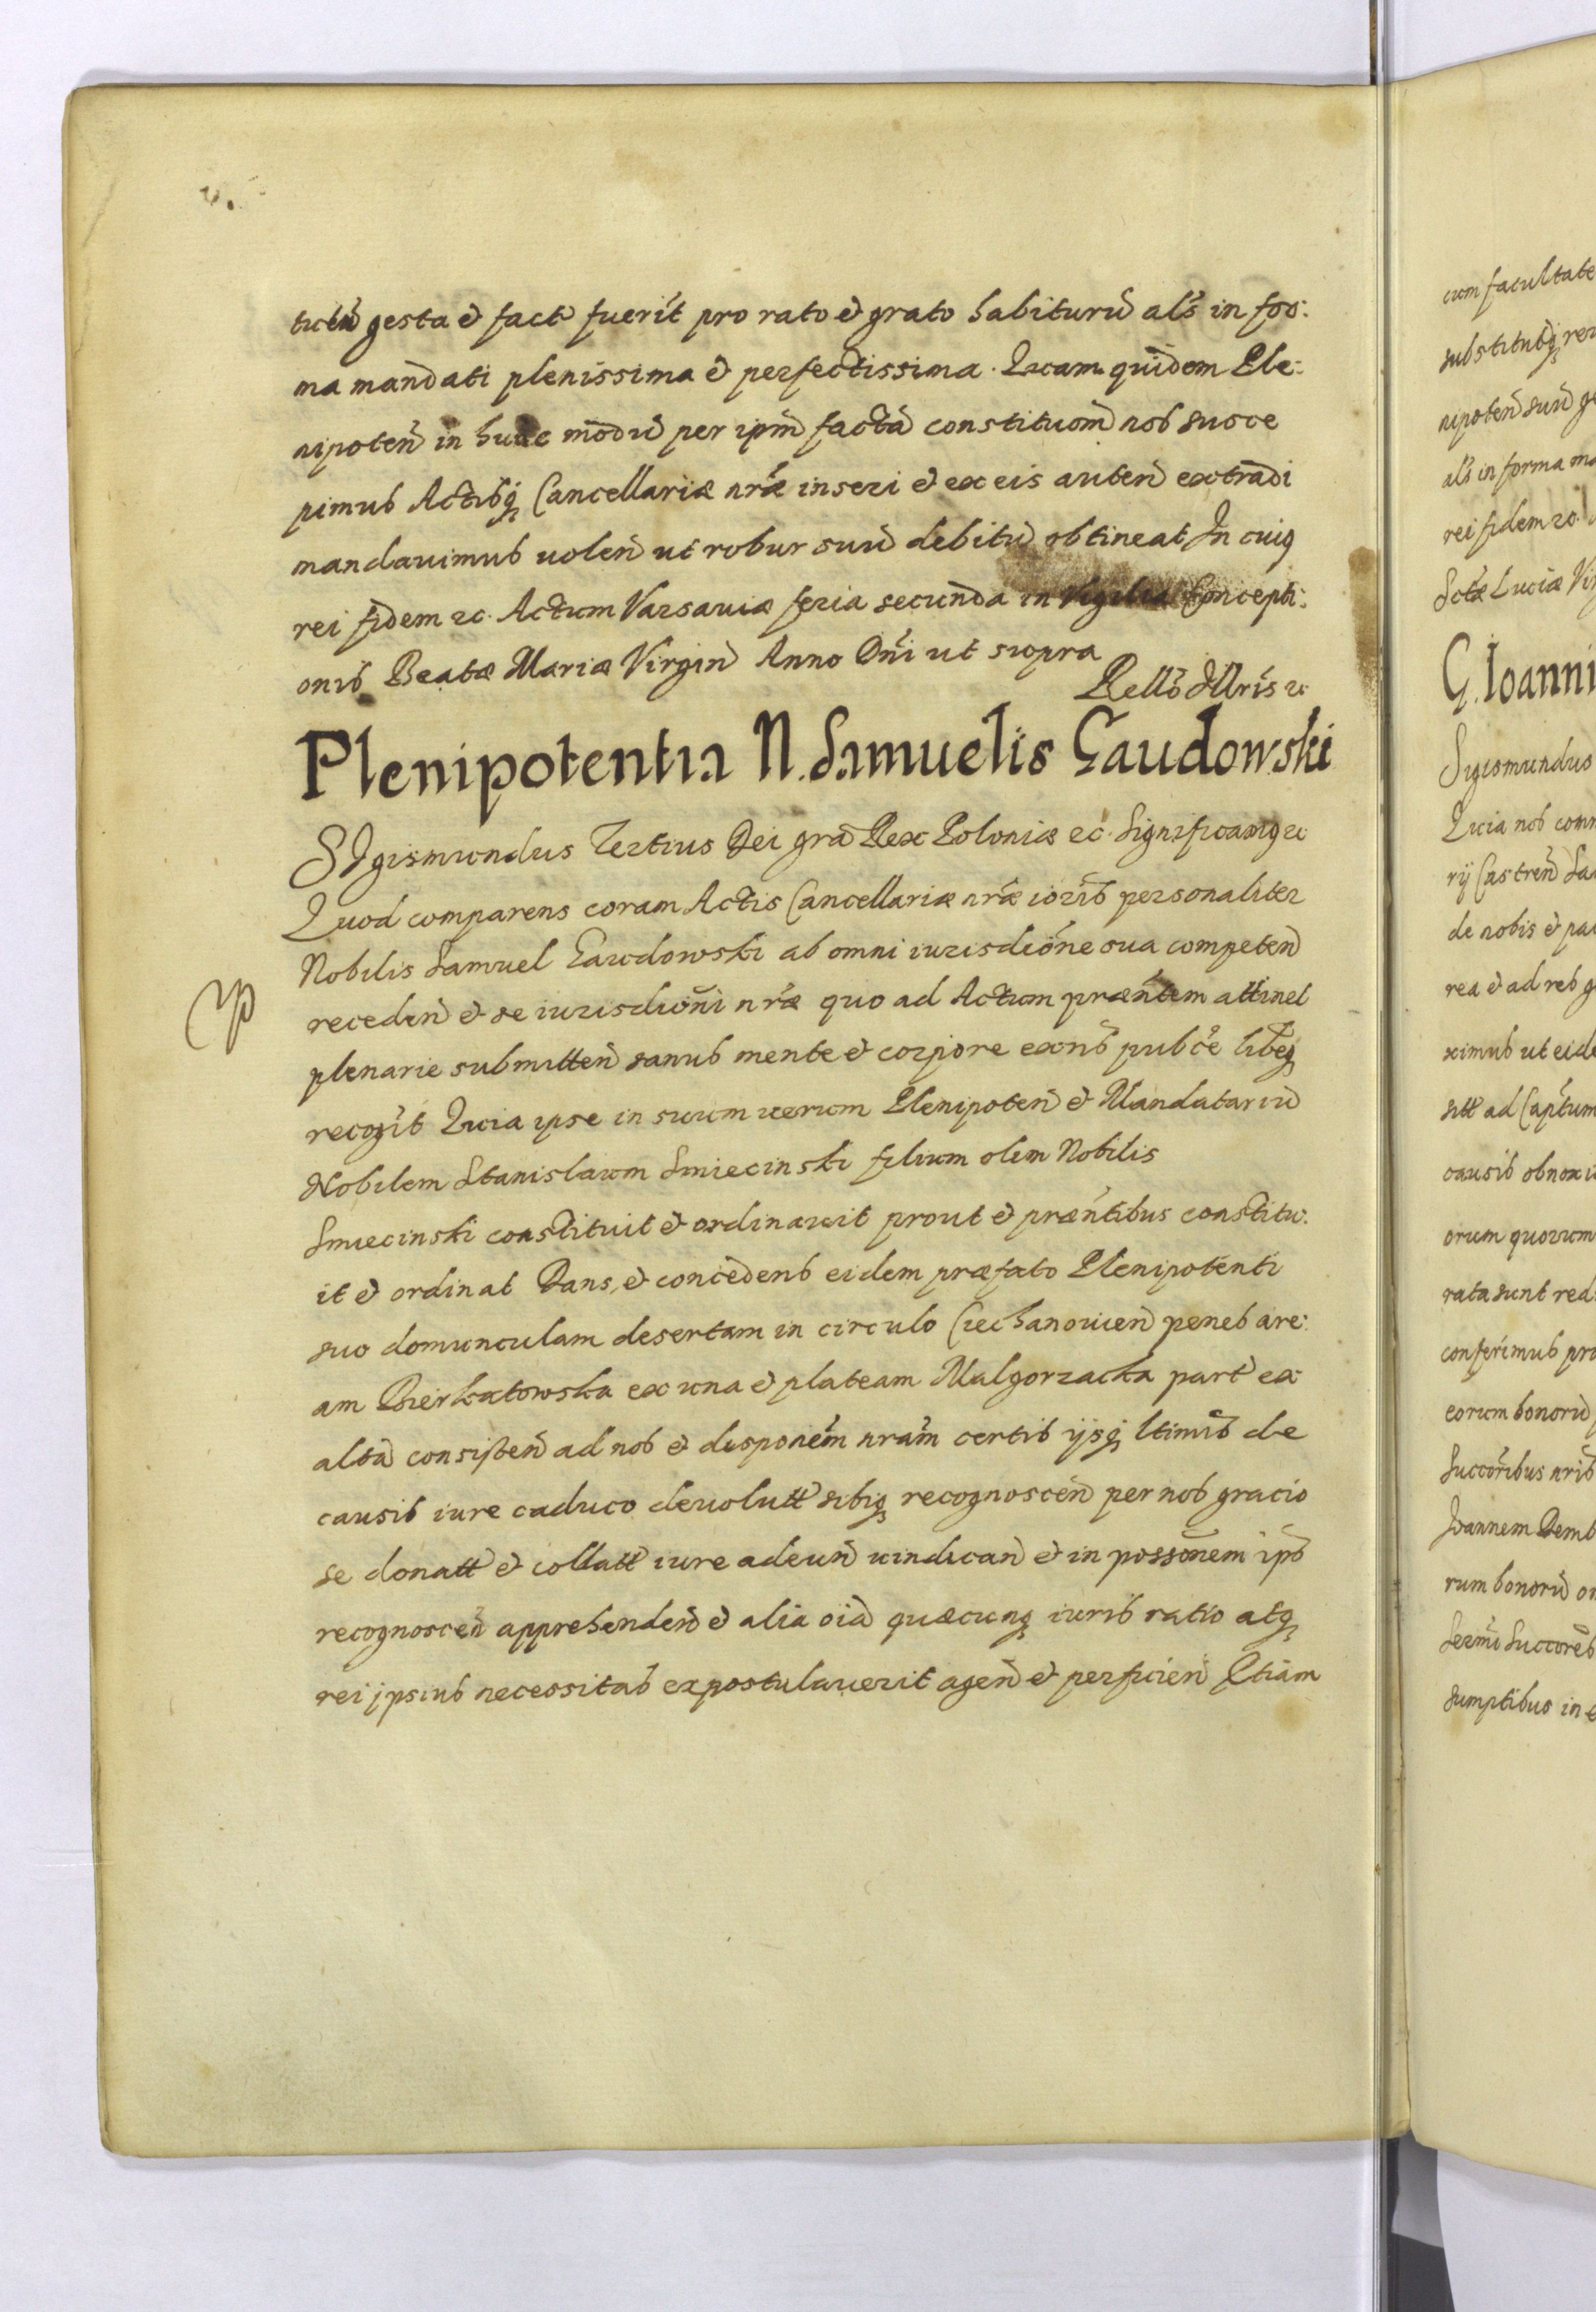 tuten gesta et fact fuerit pro rato et grato habiturū als in for:
ma mandati plenissima et perfectissima. Quam quidem Ple:
nipoten in hunc modū per ipm factā constitūom nob susce
pimus Actibq Cancellariæ nræ inseri et ex eis auten extradi
mandavimus volen ut robur suū debitū obtineat In cuiq
rei fidem etc. Actum Varsaviæ feria secunda in Vigilia Concepti:
onis Beatæ Mariæ Virgin Anno Dni ut supra
Rello Illris etc
Plenipotentia N. Samuelis Gaudowski
Sigismundus Tertius Dei gra Rex Poloniæ etc. Significamq etc
Quod comparens coram Actis Cancellariæ nræ iorib personaliter
Nobilis Samuel Gaudowski ab omni iurisdione sua competen
receden et se iurisdioni nræ quo ad Actum præntem attinet
plenarie submitten sanus mente et corpore exns pubce libeq
recogit Quia ipse in suum verum Plenipoten et Mandatariū
Nobilem Stanislaum Smiecinski filium olim Nobilis
Smiecinski constituit et ordinavit prout et præntibus constitu:
it et ordinat Dans et concedens eidem præfato Plenipotenti
suo domunculam desertam in circulo Ciechanovien penes are:
am Bierkatowska ex una et plateam Malgorzacka part ex
altā consisten ad nos et disponem nram certis ijsq ltimis de
causis iure caduco devolutt sibiq recognoscen per nos gracio
se donatt et collatt iure adeun vindican et in possonem ips
recognoscen apprehenden et alia oiā quæcunq iuris ratio atq
rei ipsius necessitas expostulaverit agen et perficien Etiam
cum facultate
substitutq
nipoten suū
als in forma
rei fidem etc.
Sctæ Luciæ
G. Ioanni
Sigismundus
Quia nob
rij Castren
de nobis et
rea et ad res
ximus ut
sitt ad
causis
orum quorum
rata sunt
conferimus
eorum bonorū
Succoribus nris
Joannem
rum bonorū
Sermi Succores
sumptibus in